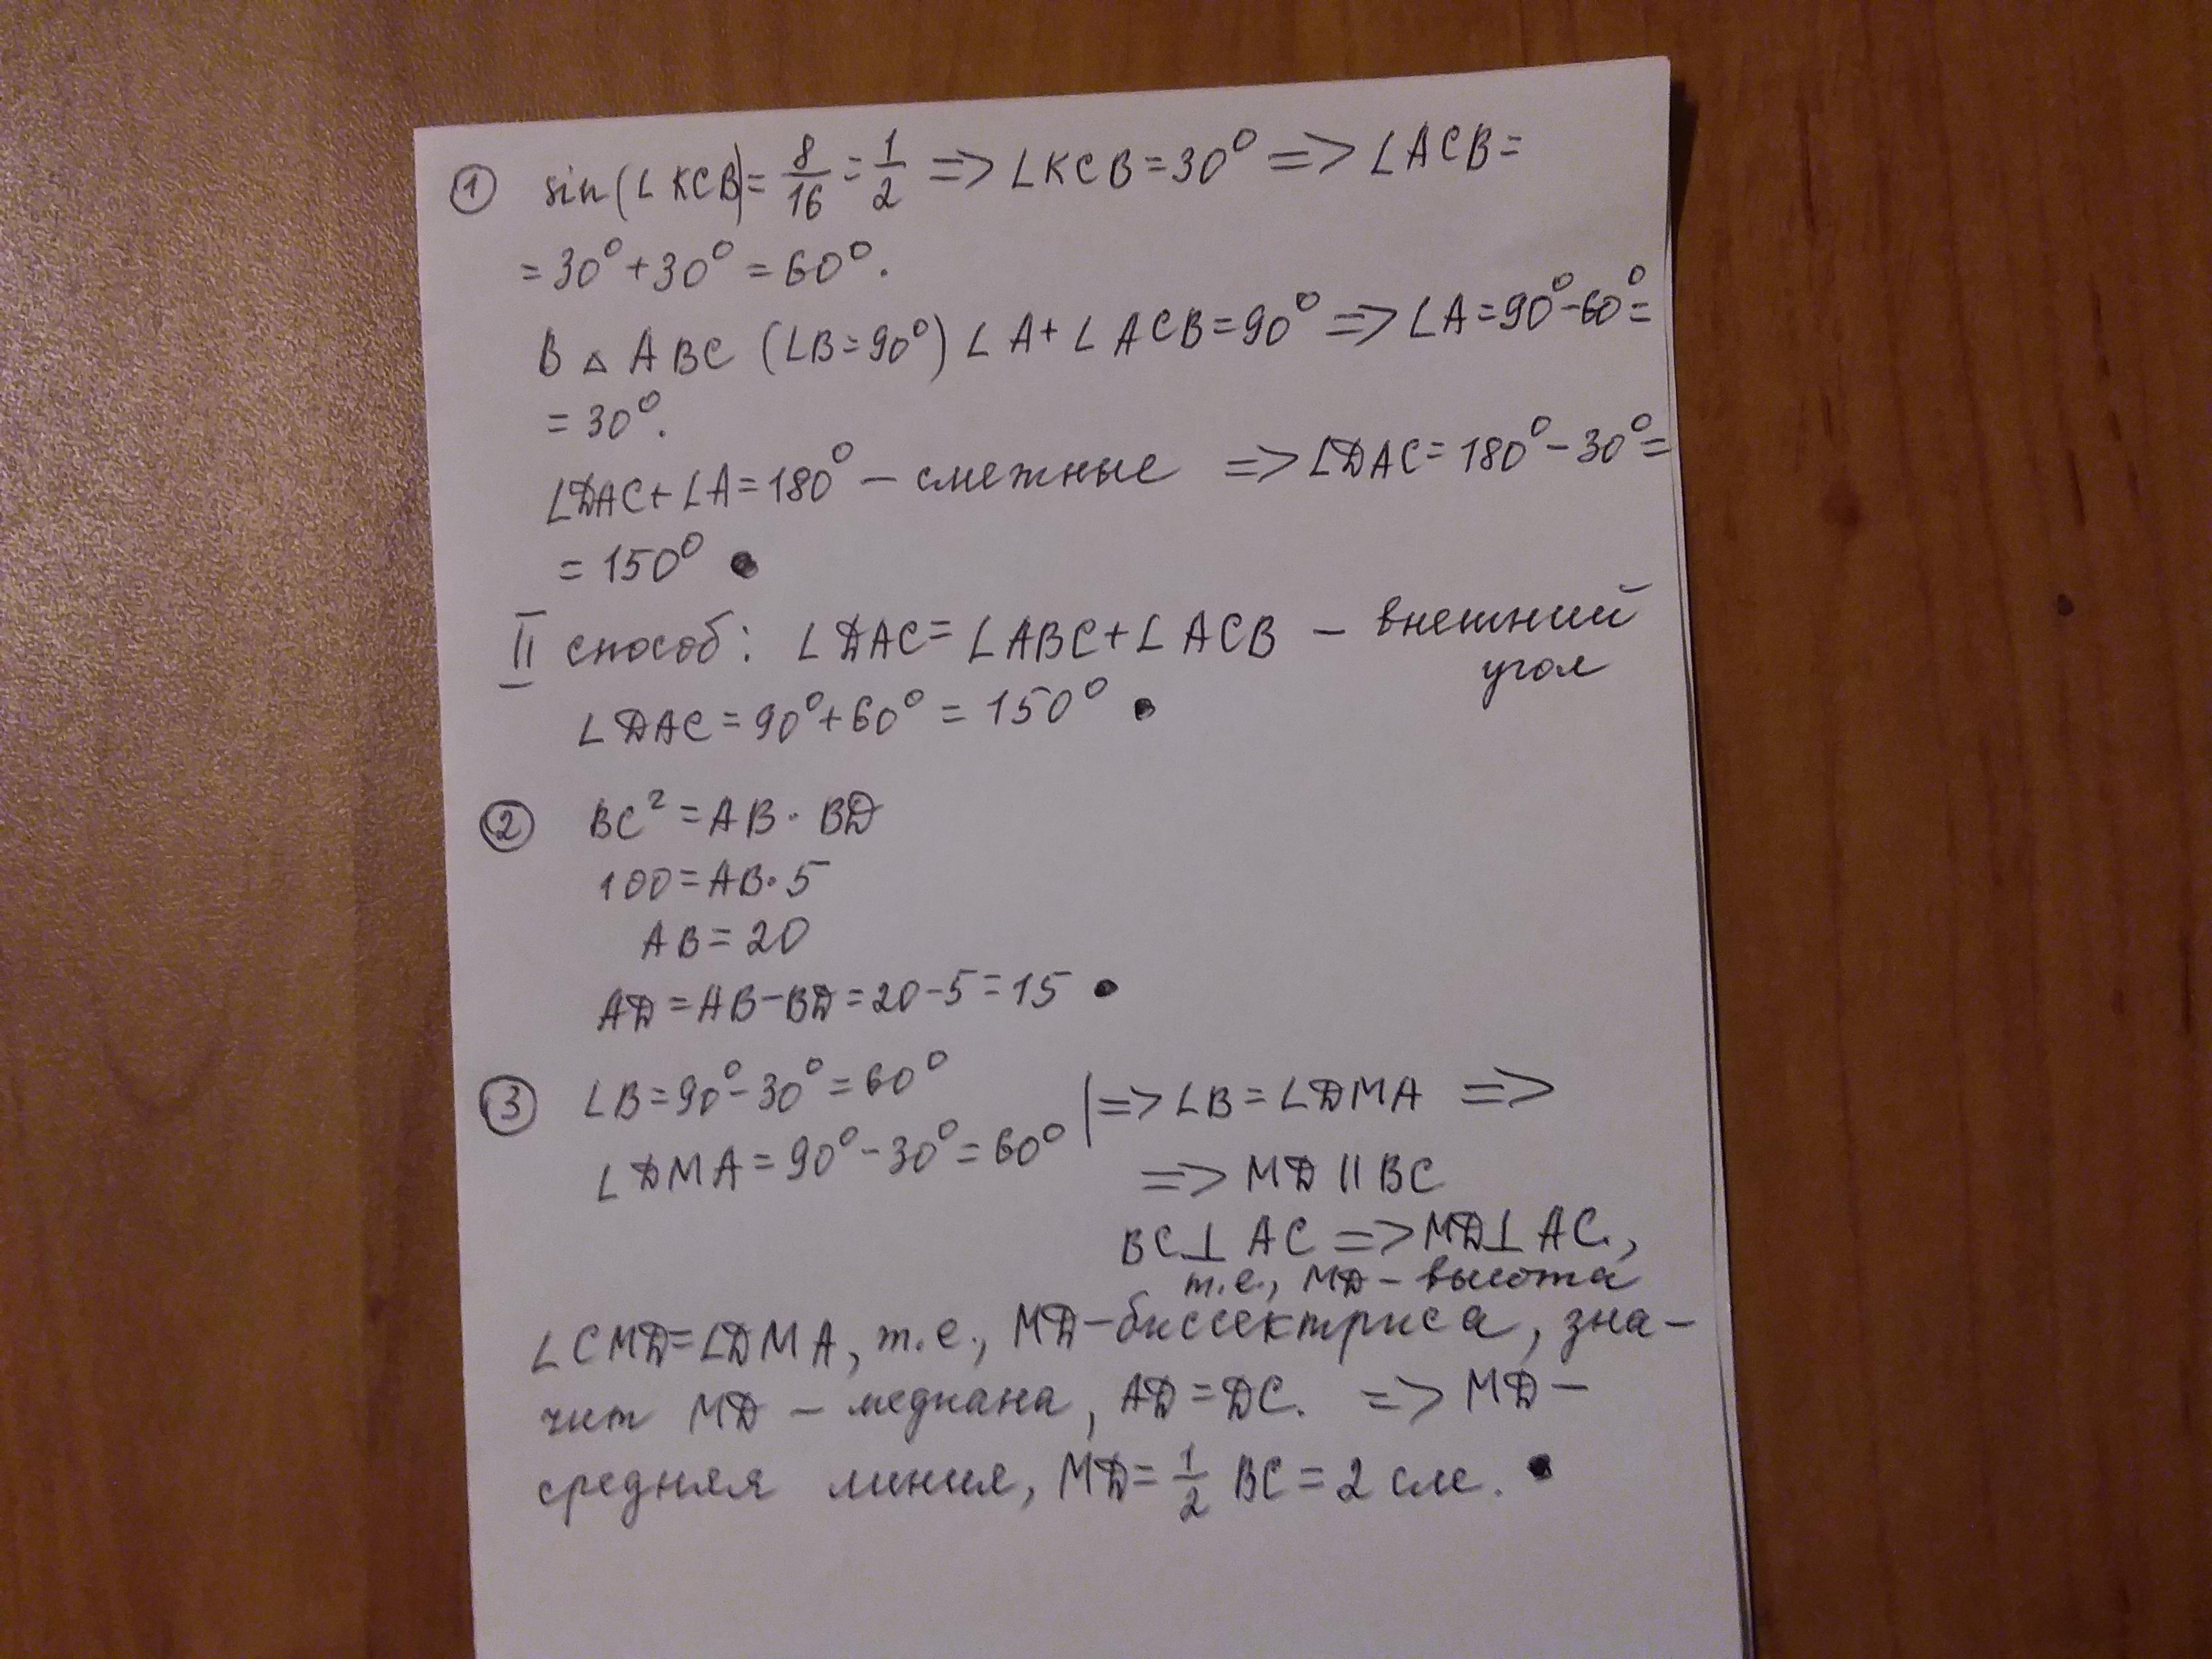 ① sin(∠KCB)= 8/16 = 1/2 => ∠KCB=30° => ∠ACB=
=30°+30°=60°.
В △ ABC (∠B=90°) ∠A+∠ACB=90° => ∠A=90°-60°=
=30°.
∠DAC+∠A=180° – смежные => ∠DAC=180°-30°=
=150° •
II способ: ∠DAC=∠ABC+∠ACB – внешний
угол
∠DAC=90°+60°=150° •
② BC²=AB·BD
100=AB·5
AB=20
AD=AB-BD=20-5=15 •
③ ∠B=90°-30°=60°
∠DMA=90°-30°=60° |=> ∠B=∠DMA =>
=> MD || BC
BC⊥AC => MD⊥AC,
т.е., MD – высота
∠CMD=∠DMA, т.е., MD-биссектриса, зна-
чит MD – медиана, AD=DC. => MD –
средняя линия, MD= 1/2 BC=2 см. •